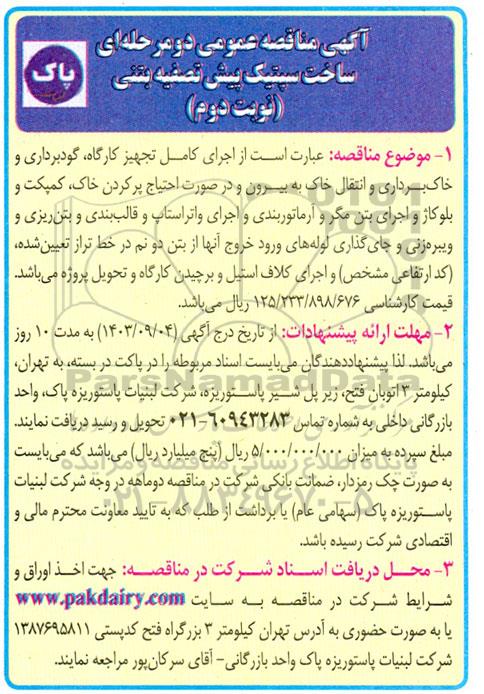 آگهی مناقصه عمومی دو مرحله‌ای
ساخت سپتیک پیش تصفیه بتنی
(نوبت دوم)
پاک
۱- موضوع مناقصه: عبارت است از اجرای کامل تجهیز کارگاه، گودبرداری و
خاک‌برداری و انتقال خاک به بیرون و در صورت احتیاج پرکردن خاک، کمپکت و
بلوکاژ و اجرای بتن مگر و آرماتوربندی و اجرای واتراستاپ و قالب‌بندی و بتن‌ریزی و
ویبره‌زنی و جای‌گذاری لوله‌های ورود خروج آنها از بتن دو نم در خط تراز تعیین‌شده،
(کد ارتفاعی مشخص) و اجرای کلاف استیل و برچیدن کارگاه و تحویل پروژه می‌باشد.
قیمت کارشناسی ۱۲۵/۲۳۳/۸۹۸/۶۷۶ ریال می‌باشد.
۲- مهلت ارائه پیشنهادات: از تاریخ درج آگهی (۱۴۰۳/۰۹/۰۴) به مدت ۱۰ روز
می‌باشد. لذا پیشنهاددهندگان می‌بایست اسناد مربوطه را در پاکت در بسته، به تهران،
کیلومتر ۳ اتوبان فتح، زیر پل شیر پاستوریزه، شرکت لبنیات پاستوریزه پاک، واحد
بازرگانی داخلی به شماره تماس ۶۰۹۴۳۲۸۳-۰۲۱ تحویل و رسید دریافت نمایند.
مبلغ سپرده به میزان ۵/۰۰۰/۰۰۰/۰۰۰ ریال (پنج میلیارد ریال) می‌باشد که می‌بایست
به صورت چک رمزدار، ضمانت بانکی شرکت در مناقصه دوماهه در وجه شرکت لبنیات
پاستوریزه پاک (سهامی عام) یا برداشت از طلب که به تایید معاونت محترم مالی و
اقتصادی شرکت رسیده باشد.
۳- محل دریافت اسناد شرکت در مناقصه: جهت اخذ اوراق و
شرایط شرکت در مناقصه به سایت www.pakdairy.com
یا به صورت حضوری به آدرس تهران کیلومتر ۳ بزرگراه فتح کدپستی ۱۳۸۷۶۹۵۸۱۱
شرکت لبنیات پاستوریزه پاک واحد بازرگانی- آقای سرکان‌پور مراجعه نمایند.
ParsNamadData
پایگاه اطلاع رسانی مناقصه و مزایده
۰۲۱-۸۸۳۴۹۶۷۰-۵